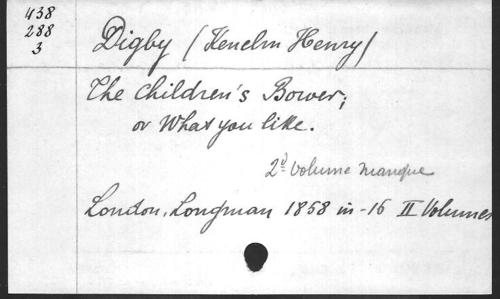 438
288
3
Digby (Kenelm Henry)
The Children's Bower;
or What you like.
2d Volume manque
London, Longman 1858 in-16 II Volumes